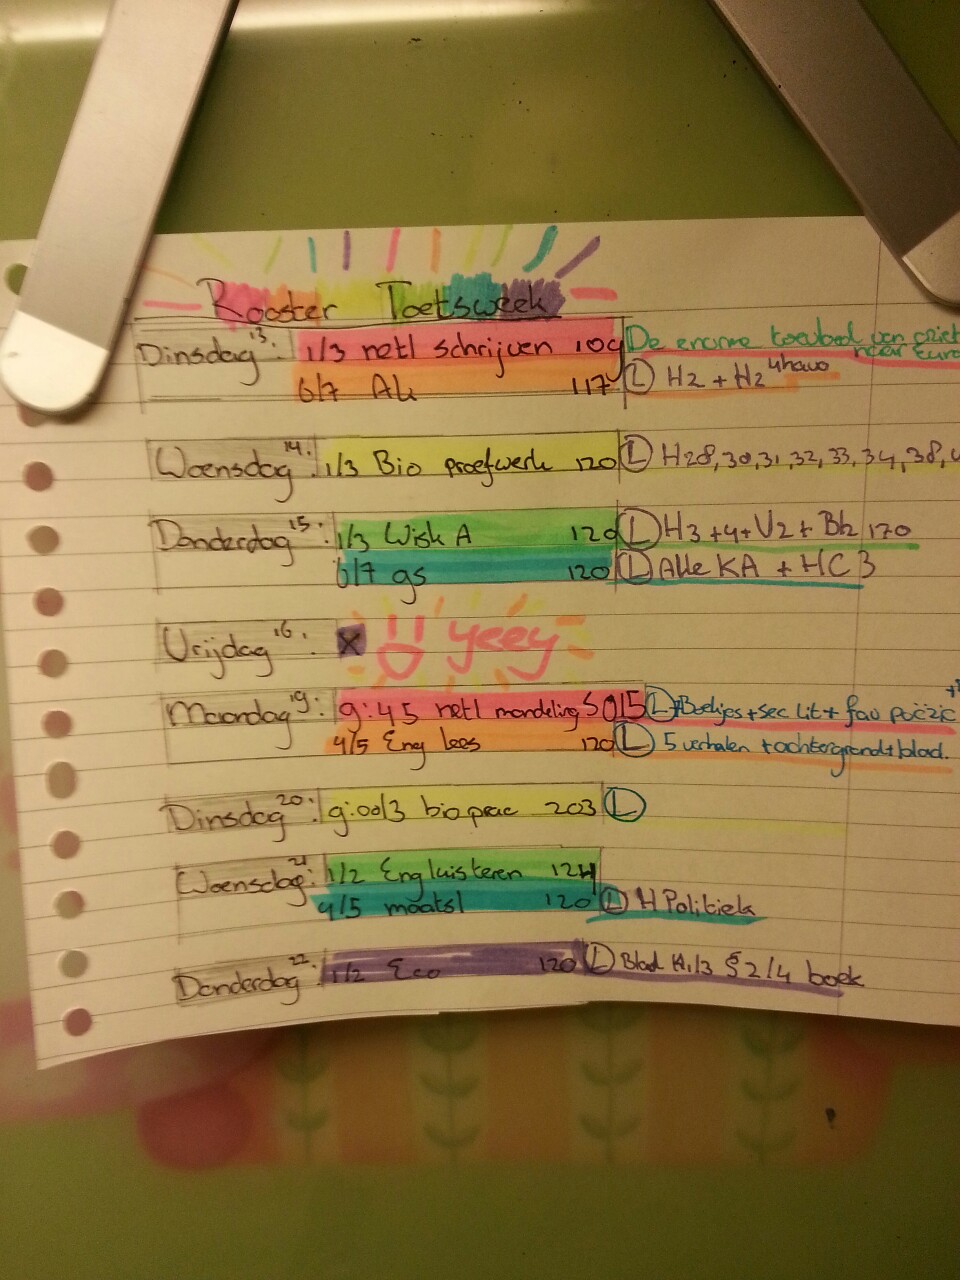 Rooster Toetsweek
Dinsdag 13: 1/3 netl schrijven 109 De enorme toevloed van
naar Euro
6/7 Ak 117 L H2 + H2 4havo
Woensdag 14: 1/3 Bio proefwerk 120 L H28,30,31,32,33,34,38,
Donderdag 15: 1/3 Wisk A 120 L H3+4+V2+Blz 170
6/7 gs 120 L Alle KA + HC3
Vrijdag 16: X yeey
Maandag 19: 9:45 netl mondeling S015 L Boekjes+sec lit+fav poëzie
4/5 Eng lees 120 L 5 verhalen+achtergrond+blad.
Dinsdag 20: 9:00/3 bio prac 203 L
Woensdag 21: 1/2 Eng luisteren 124
4/5 maatsl 120 L H Politiek
Donderdag 22: 1/2 Eco 120 L Blad H1/3 § 2/4 boek